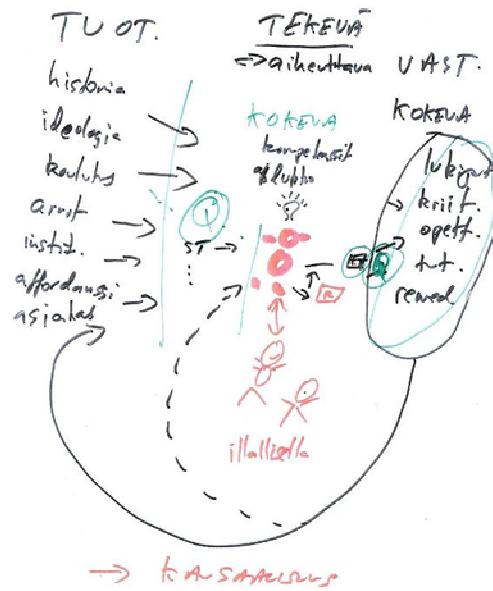 TUOT.
historia
ideologia
koulutus
arvot
instit.
affordanssi
asiakas
ST
TEKEVÄ
<=> aiheuttava
KOKEVA
R
illallisella
VAST.
KOKEVA
lukijat
kriit.
opett.
tut.
→ KANSAALISUUS